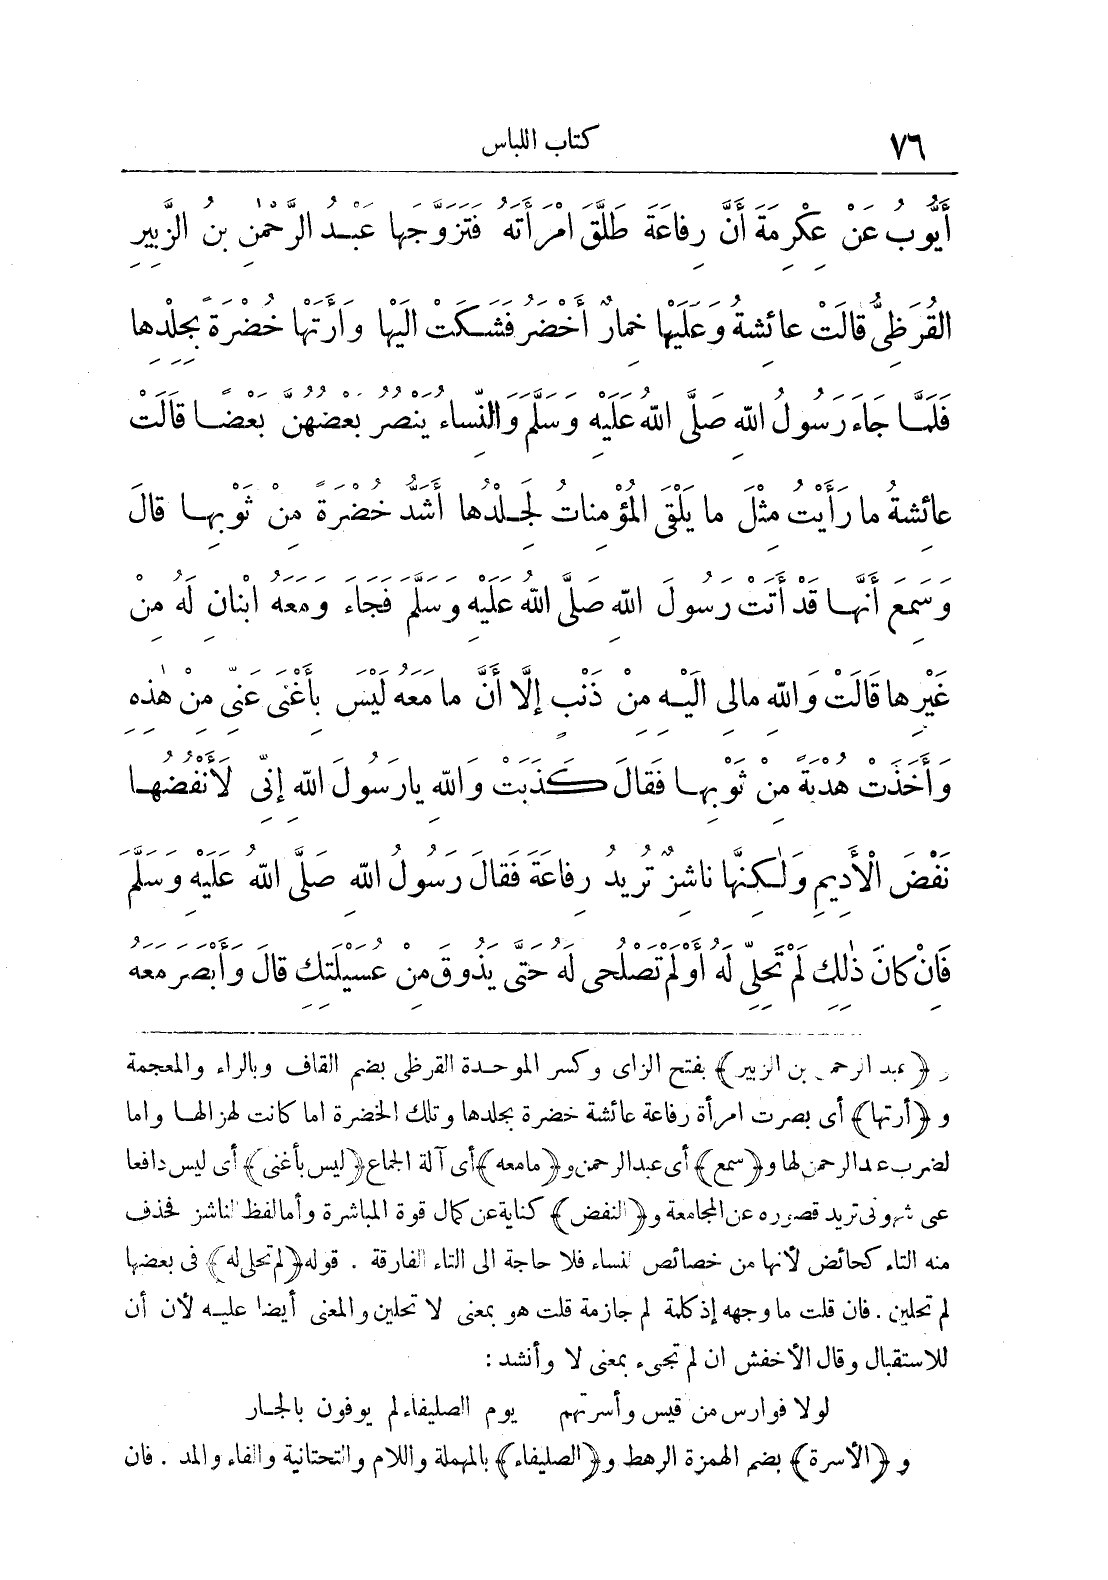 ٧٦
كتاب اللباس
أَيُّوبُ عَنْ عِكْرِمَةَ أَنَّ رِفاعَةَ طَلَّقَ امْرَأَتَهُ فَتَزَوَّجَها عَبْدُ الرَّحْمٰنِ بْنُ الزَّبِيرِ
القُرَظِيُّ قالَتْ عائِشَةُ وَعَلَيْها خِمارٌ أَخْضَرُ فَشَكَتْ الَيْها وَأَرَتْها خُضْرَةً بِجِلْدِها
فَلَمَّا جَاءَ رَسُولُ اللهِ صَلَّى اللهُ عَلَيْهِ وَسَلَّمَ وَالنِّساءُ يَنْصُرُ بَعْضُهُنَّ بَعْضًا قالَتْ
عائِشَةُ ما رَأَيْتُ مِثْلَ ما يَلْقَى المُؤْمِناتُ لَجِلْدُها أَشَدُّ خُضْرَةً مِنْ ثَوْبِها قالَ
وَسَمِعَ أَنَّها قَدْ أَتَتْ رَسُولَ اللهِ صَلَّى اللهُ عَلَيْهِ وَسَلَّمَ فَجَاءَ وَمَعَهُ ابْنانِ لَهُ مِنْ
غَيْرِها قَالَتْ وَاللهِ مالى الَيْهِ مِنْ ذَنْبٍ إلَّا أَنَّ ما مَعَهُ لَيْسَ بِأَغْنَى عَنِّي مِنْ هٰذِهِ
وَأَخَذَتْ هُدْبَةً مِنْ ثَوْبِها فَقالَ كَذَبَتْ وَاللهِ يارَسُولَ اللهِ إنِّى لَأَنْفُضُها
نَفْضَ الْأَدِيمِ وَلٰكِنَّها ناشِزٌ تُرِيدُ رِفاعَةَ فَقالَ رَسُولُ اللهِ صَلَّى اللهُ عَلَيْهِ وَسَلَّمَ
فَانْ كانَ ذٰلِكِ لَمْ تَحِلِّى لَهُ أَوْ لَمْ تَصْلُحِى لَهُ حَتَّى يَذُوقَ مِنْ عُسَيْلَتِكِ قالَ وَأَبْصَرَ مَعَهُ
و ﴿عبد الرحمن بن الزبير﴾ بفتح الزاى وكسر الموحدة القرظى بضم القاف وبالراء والمعجمة
و ﴿أرتها﴾ أى بصرت امرأة رفاعة عائشة خضرة بجلدها وتلك الخضرة اما كانت لهزالها واما
لضرب عبدالرحمن لها و﴿سمع﴾ أى عبدالرحمن و﴿مامعه﴾ أى آلة الجماع ﴿ليس بأغنى﴾ أى ليس دافعا
عنى شهوتى تريد قصوره عن المجامعة و﴿النفض﴾ كناية عن كمال قوة المباشرة وأما لفظ الناشز فحذف
منه التاء كحائض لأنها من خصائص النساء فلا حاجة الى التاء الفارقة . قوله ﴿لم تحلى له﴾ فى بعضها
لم تحلين . فان قلت ما وجهه إذ كلمة لم جازمة قلت هو بمعنى لا تحلين والمعنى أيضا عليه لأن أن
للاستقبال وقال الأخفش ان لم تجىء بمعنى لا وأنشد :
لولا فوارس من قيس وأسرتهم يوم الصليفاء لم يوفون بالجار
و ﴿الأسرة﴾ بضم الهمزة الرهط و﴿الصليفاء﴾ بالمهملة واللام والتحتانية والفاء والمد . فان